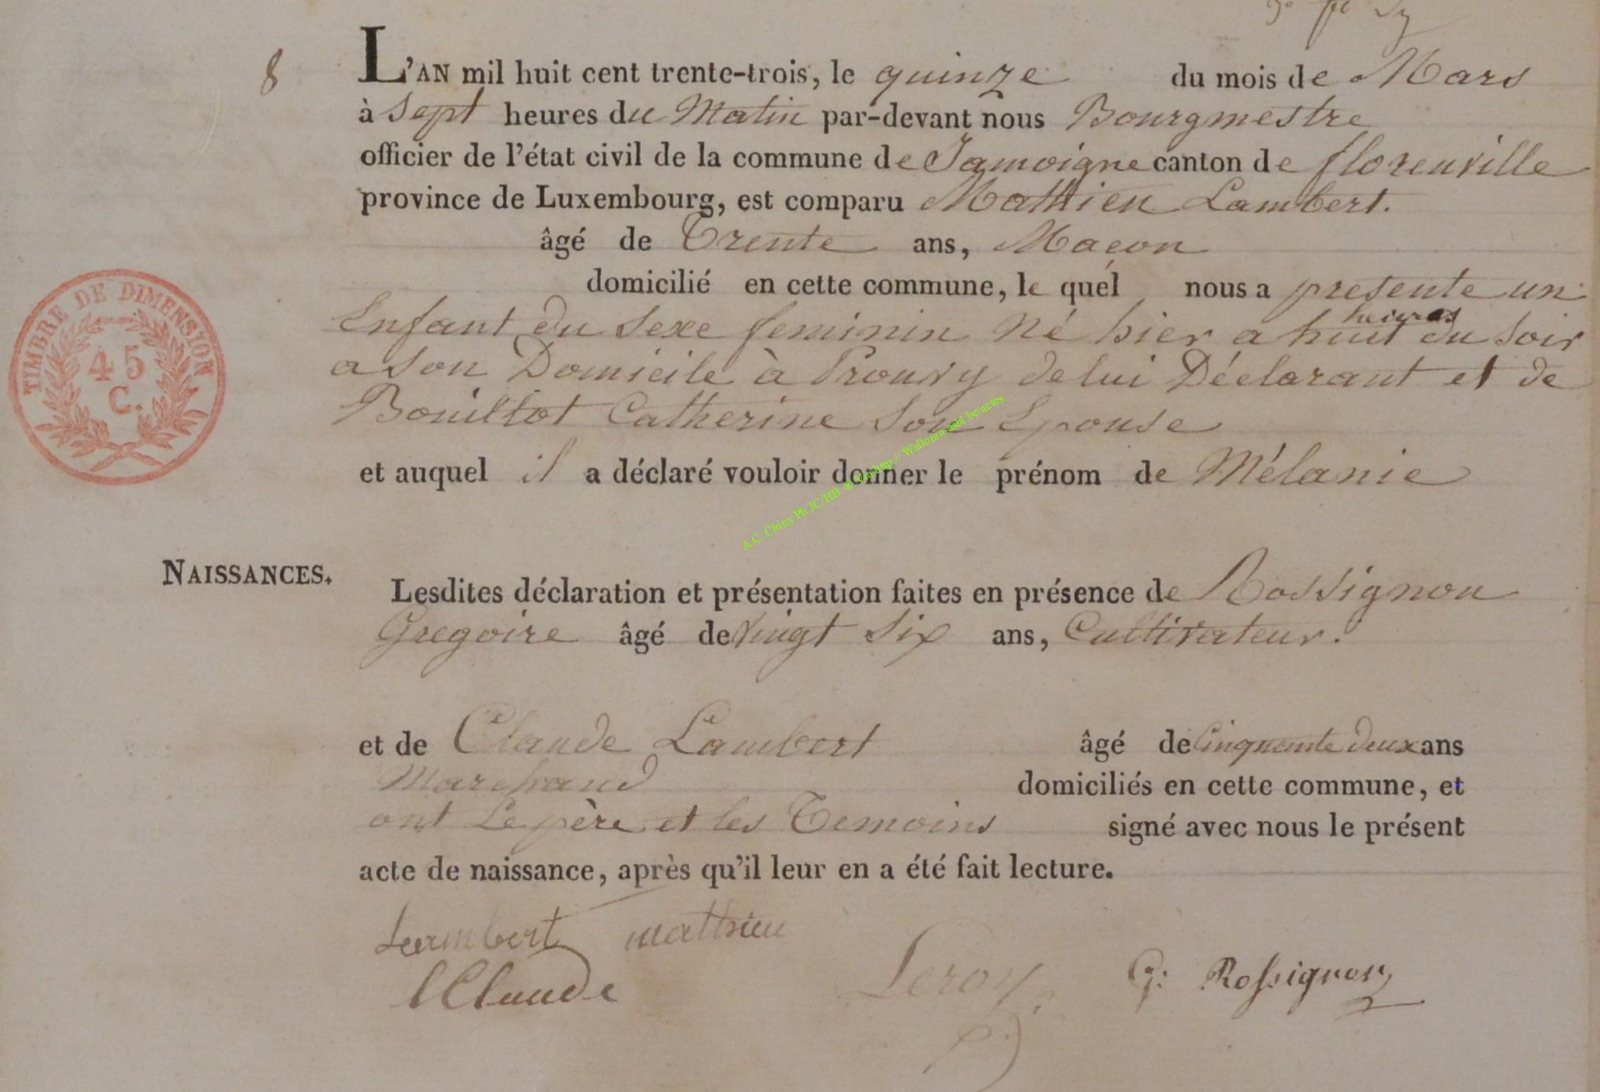 8
L'AN mil huit cent trente-trois, le quinze du mois de Mars
à Sept heures du Matin par-devant nous Bourgmestre
officier de l'état civil de la commune de Jamoigne canton de florenville
province de Luxembourg, est comparu Mathieu Lambert.
âgé de Trente ans, Maçon
domicilié en cette commune, le quel nous a présenté un
Enfant du Sexe feminin Né hier a huit heures du Soir
a Son Domicile à Prouvy de lui Déclarant et de
Bouillot Catherine Son Epouse
et auquel il a déclaré vouloir donner le prénom de Mélanie
TIMBRE DE DIMENSION
45
C.
NAISSANCES.
Lesdites déclaration et présentation faites en présence de Rossignon
Gregoire âgé de Vingt Six ans, Cultivateur.
et de Claude Lambert âgé de Cinquante deux ans
Marchand domiciliés en cette commune, et
ont Le père et les Temoins signé avec nous le présent
acte de naissance, après qu'il leur en a été fait lecture.
Lambert mathieu
lClaude Leroy G: Rossignon